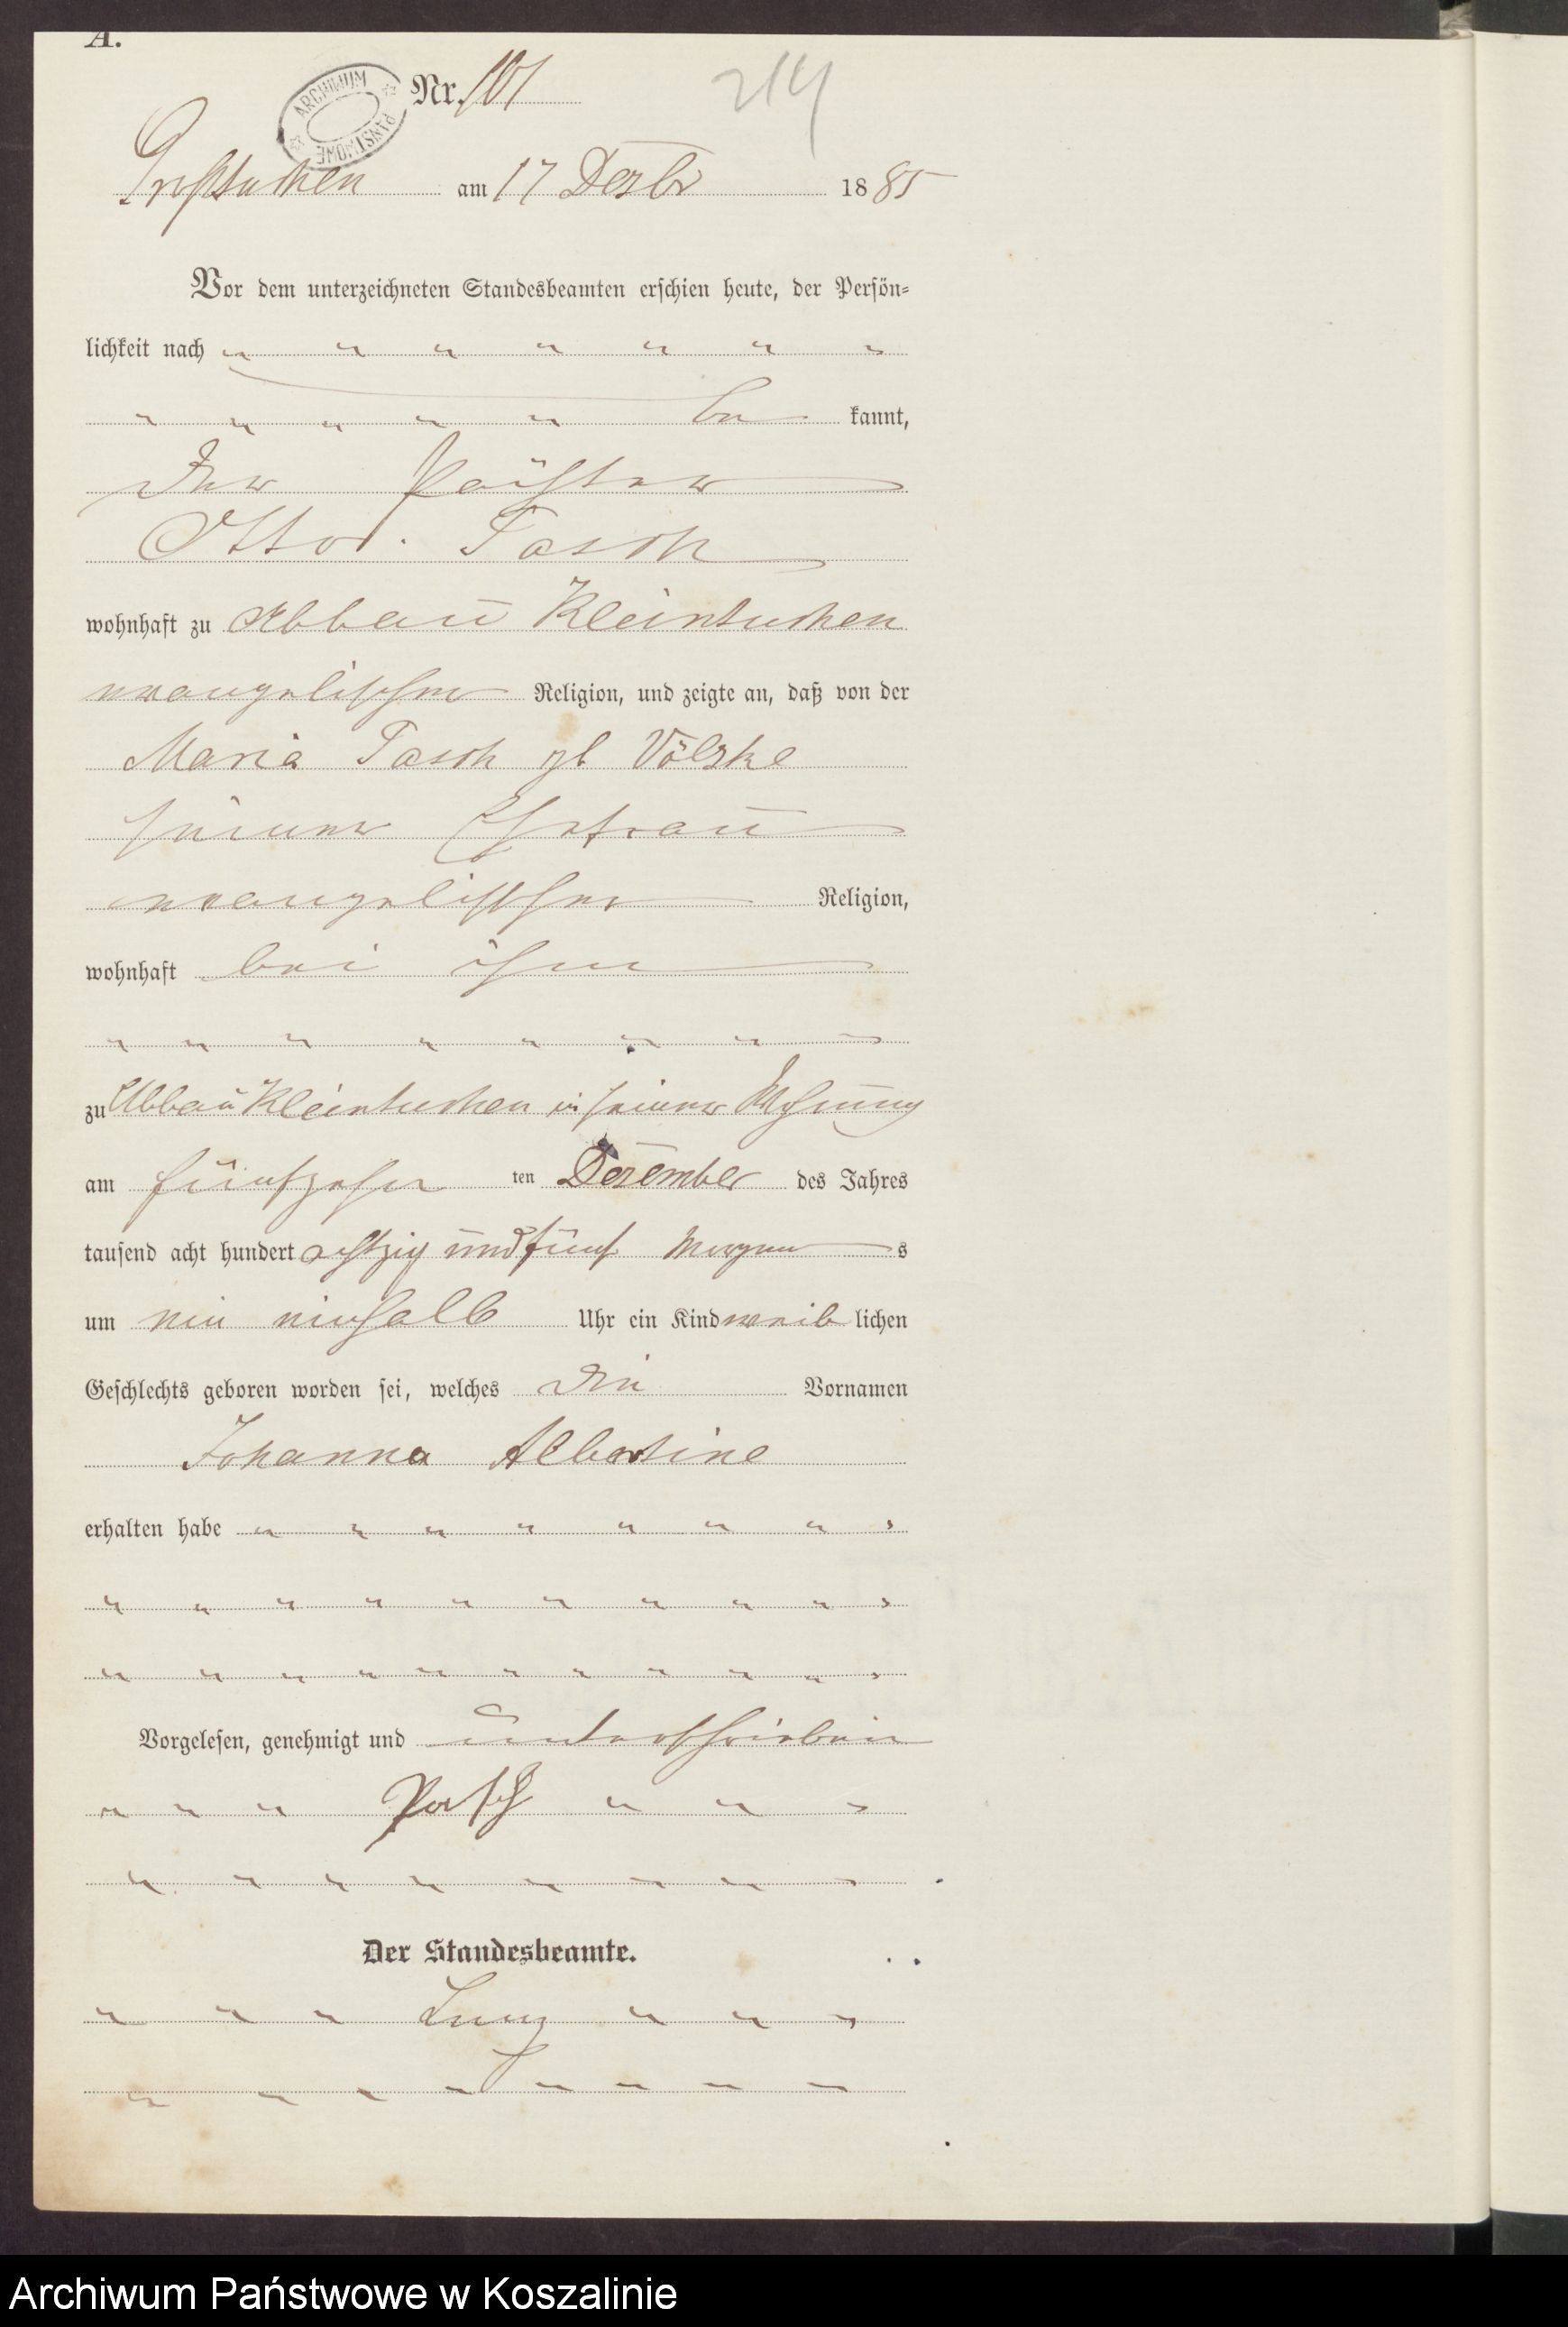 A.
ARCHIWUM PAŃSTWOWE
Nr. 101
214
Großtuchen am 17 Dezbr 1885
Vor dem unterzeichneten Standesbeamten erschien heute, der Persön-
lichkeit nach " " " " " " "
" " " " " be kannt,
der Pächter
Otto Pasch
wohnhaft zu Abbau Kleintuchen
evangelischer Religion, und zeigte an, daß von der
Maria Pasch gb Völzke
seiner Ehefrau
evangelischer Religion,
wohnhaft bei ihm
" " " " " " " "
zu Abbau Kleintuchen in seiner Wohnung
am fünfzehn ten Dezember des Jahres
tausend acht hundert achtzig und fünf Morgen s
um ein einhalb Uhr ein Kind weib lichen
Geschlechts geboren worden sei, welches die Vornamen
Johanna Albertine
erhalten habe " " " " " " " "
" " " " " " " " " "
" " " " " " " " " " "
Vorgelesen, genehmigt und unterschrieben
" " " Pasch " " "
" " " " " " " "
Der Standesbeamte.
" " " " " "
" " " " " " " "
Archiwum Państwowe w Koszalinie